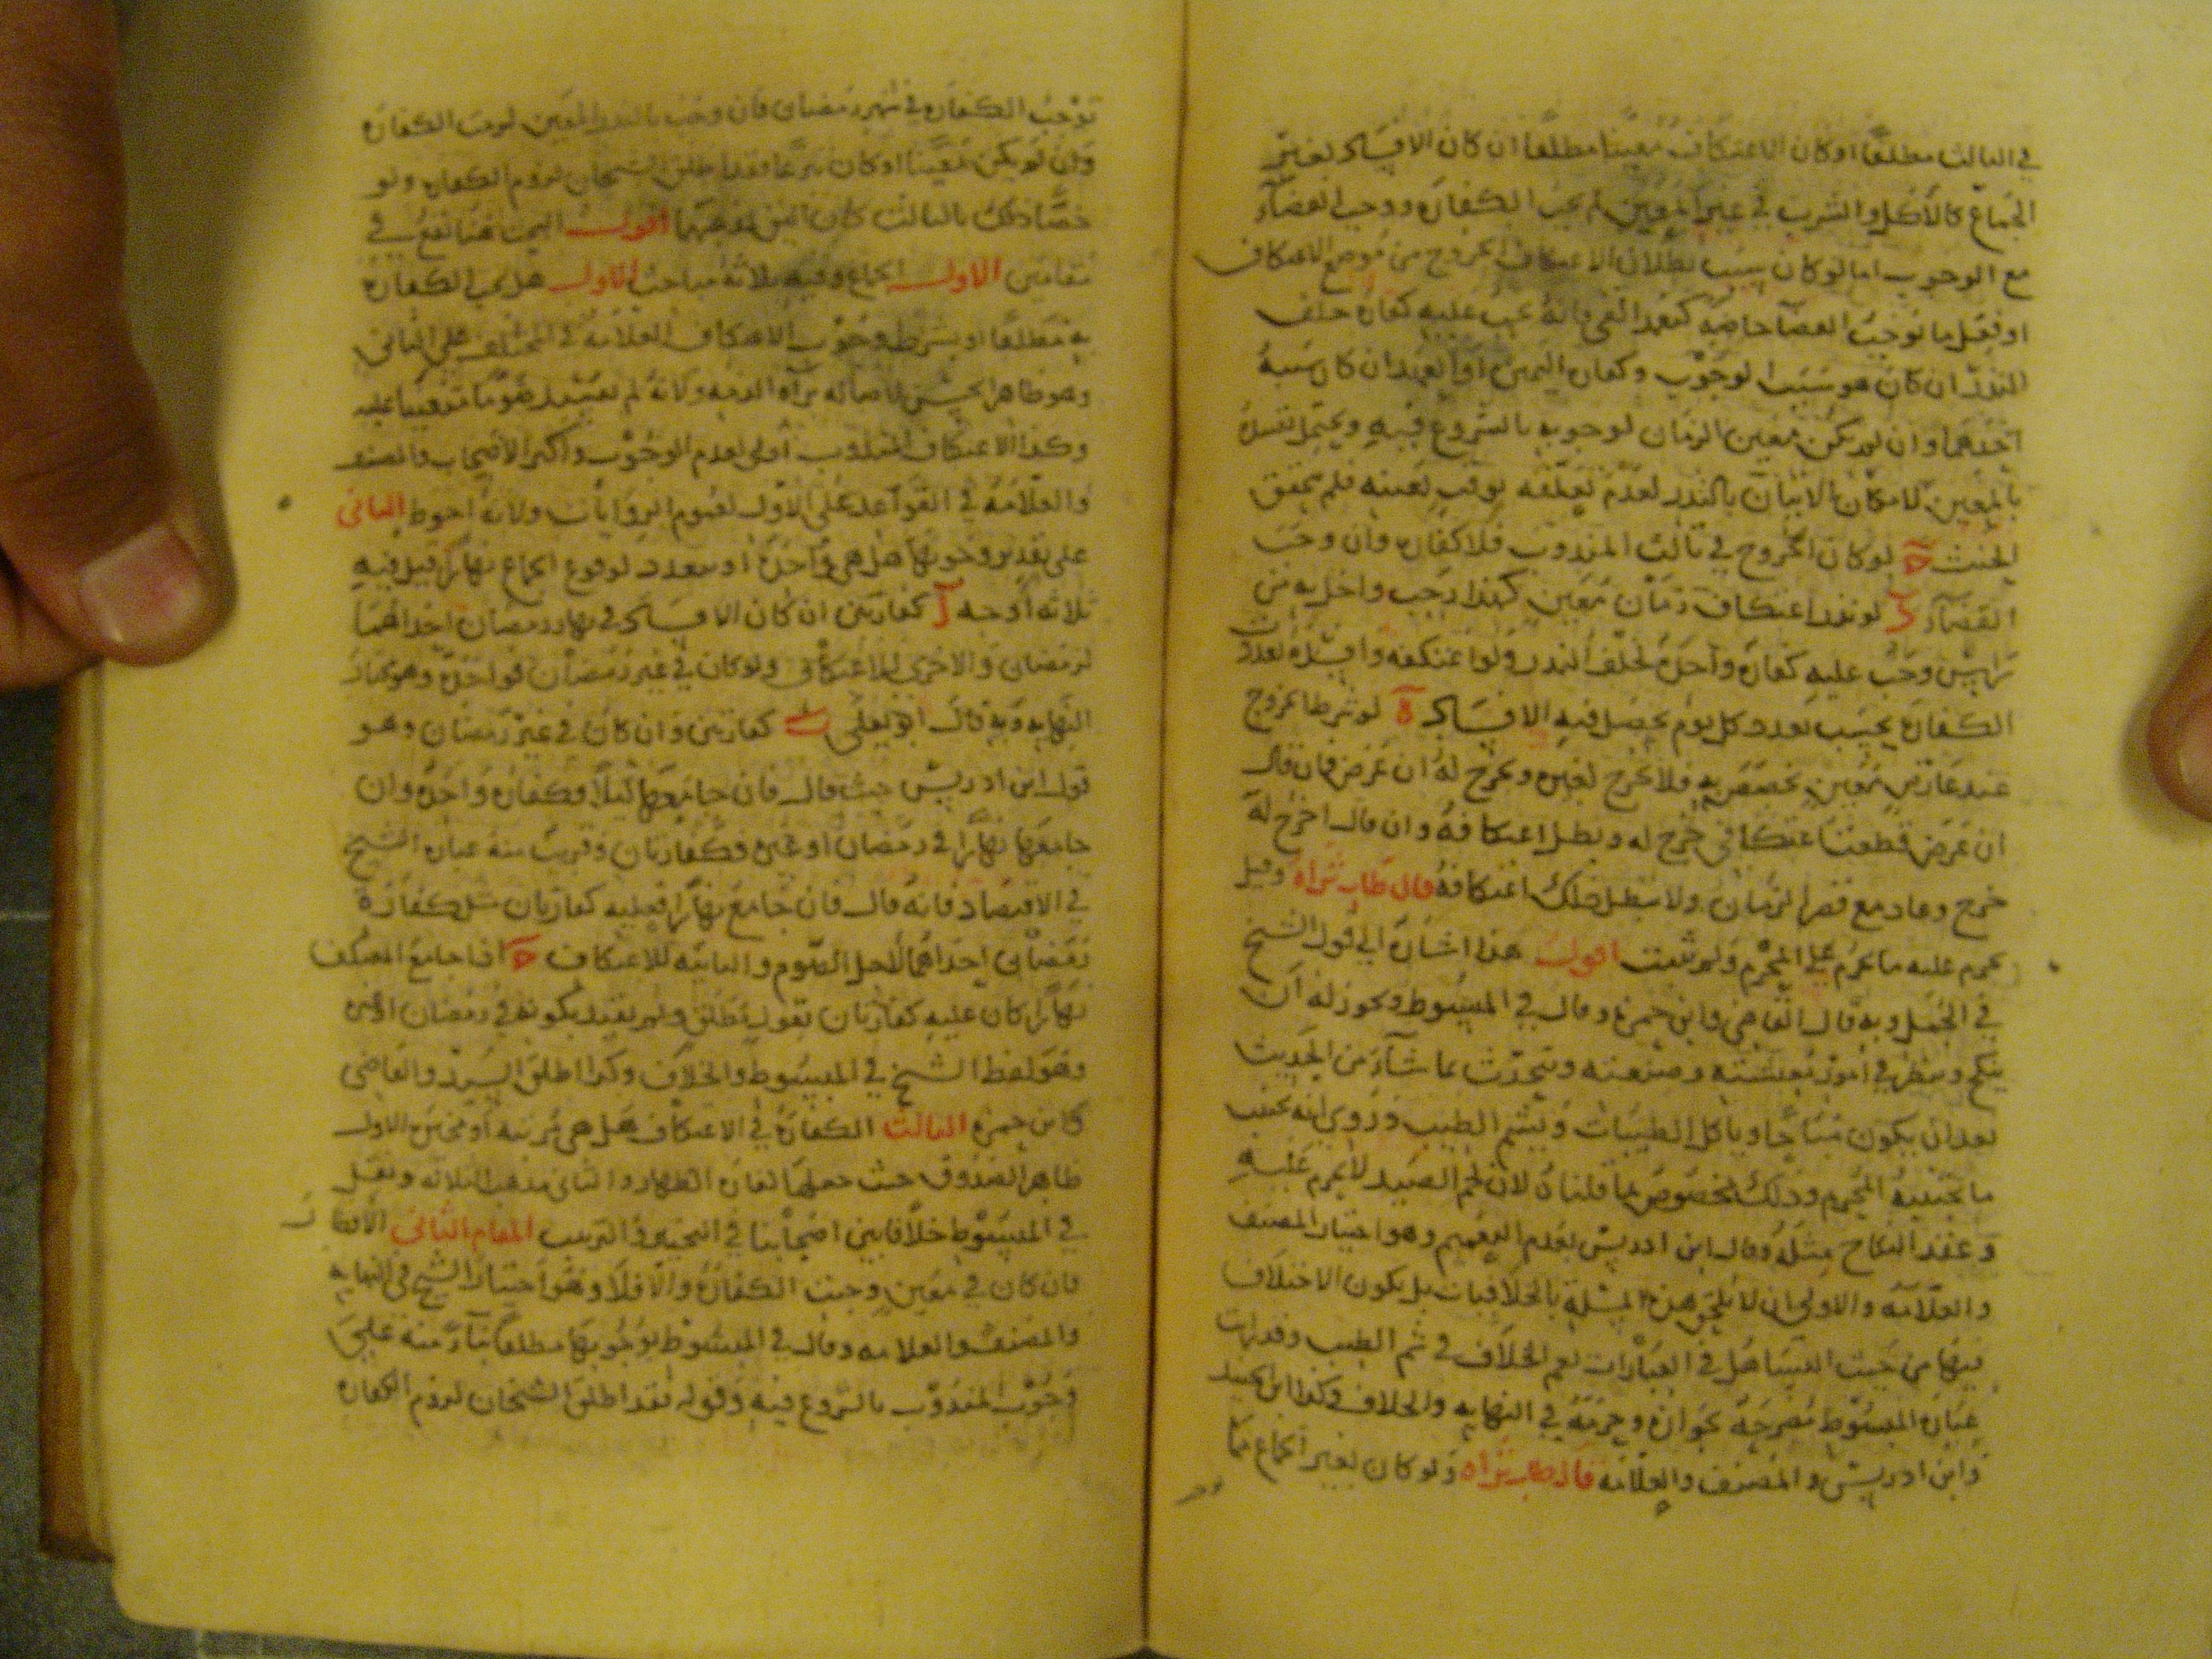 في الثالث مطلقا او كان الاعتكاف معينا مطلقا ان كان الافساد بغير
الجماع كالأكل والشرب في غير المعين لم يجب الكفارة ووجب القضاء
مع الوجوب اما لو كان سبب بطلان الاعتكاف الخروج من موضع الاعتكاف
او فعل ما يوجب القضا خاصه كتعمد القي فانه يجب عليه كفارة خلف
النذر ان كان هو سبب الوجوب وكفارة اليمين او العهد ان كان سببه
احدهما وان لم يكن معين الزمان لوجوبه بالشروع فيه ويحتمل
بالمعين لامكان الاتيان بالنذر لعدم تعلقه بوقت بعينه فلم يتحقق
الحنث لو كان الخروج في ثالث المندوب فلا كفاره وان وجب
القضآء لو نذر اعتكاف زمان معين كهذا رجب واخل به من
راس وجب عليه كفارة واحدة لخلف النذر ولو اعتكفه وافسده تعددت
الكفارة بحسب تعدد كل يوم يحصل فيه الافساد ة لو شرط الخروج
عند عارض معين تخصص به فلا يخرج لغيره ويخرج له ان عرض فان قال
ان عرض قطعت اعتكافي خرج له وبطل اعتكافه وان قال اخرج له
خرج وعاد مع قصر الزمان ولا يبطل بذلك اعتكافه قال طاب ثراه وقيل
يحرم عليه ما يحرم على المحرم ولم يثبت اقول هذا اشارة الى قول الشيخ
في الجمل وبه قال القاضي وابن حمزة وقال في المبسوط ويجوز له ان
ينكح وينظر في امور معيشته وصنعته ويتحدث بما شآء من الحديث
بعد ان يكون مباحا وياكل الطيبات ويشم الطيب وروي انه يجتنب
ما يجتنبه المحرم وذلك مخصوص بما قلناه لان لحم الصيد لا يحرم عليه
وعقد النكاح مثله وقال ابن ادريس بعدم التعميم وهو اختيار المصنف
والعلامه والاولى ان لا يلحق هذه المسئلة بالخلافيات بل يكون الاختلاف
فيها من حيث التساهل في العبارات نعم الخلاف في شم الطيب وقد رات
عبارة المبسوط مصرحة بجوازه وحرمه في النهايه والخلاف وكذا ابن الجنيد
وابن ادريس والمصنف والعلامه قال طاب ثراه ولو كان بغير الجماع مما
يوجب الكفاره في شهر رمضان فان وجب بالنذر المعين لزمت الكفاره
وان لم يكن معينا او كان تبرعا فقد اطلق الشيخان لزوم الكفاره ولو
خصا ذلك بالثالث كان اليق بمذهبهما اقول البحث هنا يقع في
مقامين الاول الجماع وفيه ثلاثة مباحث الاول هل يجب الكفاره
به مطلقا او بشرط وجوب الاعتكاف العلامه في المختلف على الثاني
وهو ظاهر الحسن لاصاله براه الذمه ولانه لم يفسد صوما متعينا عليه
وكذا الاعتكاف المندوب اولى لعدم الوجوب واكثر الاصحاب والمصنف
والعلامه في القواعد على الاول لعموم الروايات ولانه احوط الثاني
على تقدير وجوبها هل هي واحدة او متعدد لوقوع الجماع نهارا قيل فيه
ثلاثه اوجه آ كفارتين ان كان الافساد في نهار رمضان احداهما
لرمضان والاخرى للاعتكاف ولو كان في غير رمضان فواحدة وهو مختار
النهايه وبه قال ابو يعلى ب كفارتين وان كان في غير رمضان وهو
قول ابن ادريس حيث قال فان جامعها ليلا فكفاره واحدة وان
جامعها نهارا في رمضان او غيره فكفارتان وقريب منه عباره الشيخ
في الاقتصاد فانه قال فان جامع نهارا فعليه كفارتان مثل كفارة
رمضان احداهما لاجل الصوم والثانيه للاعتكاف اذا جامع المعتكف
نهارا كان عليه كفارتان بقول مطلق ولم يقيد بكونه في رمضان او غيره
وهو لفظ الشيخ في المبسوط والخلاف وكذا اطلق السيد والقاضي
وابن حمزة الثالث الكفارة في الاعتكاف هل هي مرتبه او مخيره الاول
ظاهر الصدوق حيث جعلها كفاره الظهار والثاني مذهب الثلاثه ونقل
في المبسوط خلافا بين اصحابنا في التخيير والترتيب المقام الثاني الافطار
فان كان في معين وجبت الكفارة والا فلا وهو اختيار الشيخ في النهايه
والمصنف والعلامه وقال في المبسوط بوجوبها مطلقا بناء منه على
وجوب المندوب بالشروع فيه وقوله فقد اطلق الشيخان لزوم الكفاره